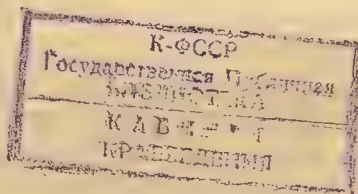 К-ФССР
Государственная Публичная
БИБЛИОТЕКА
КАБИНЕТ
КРАЕВЕДЕНИЯ